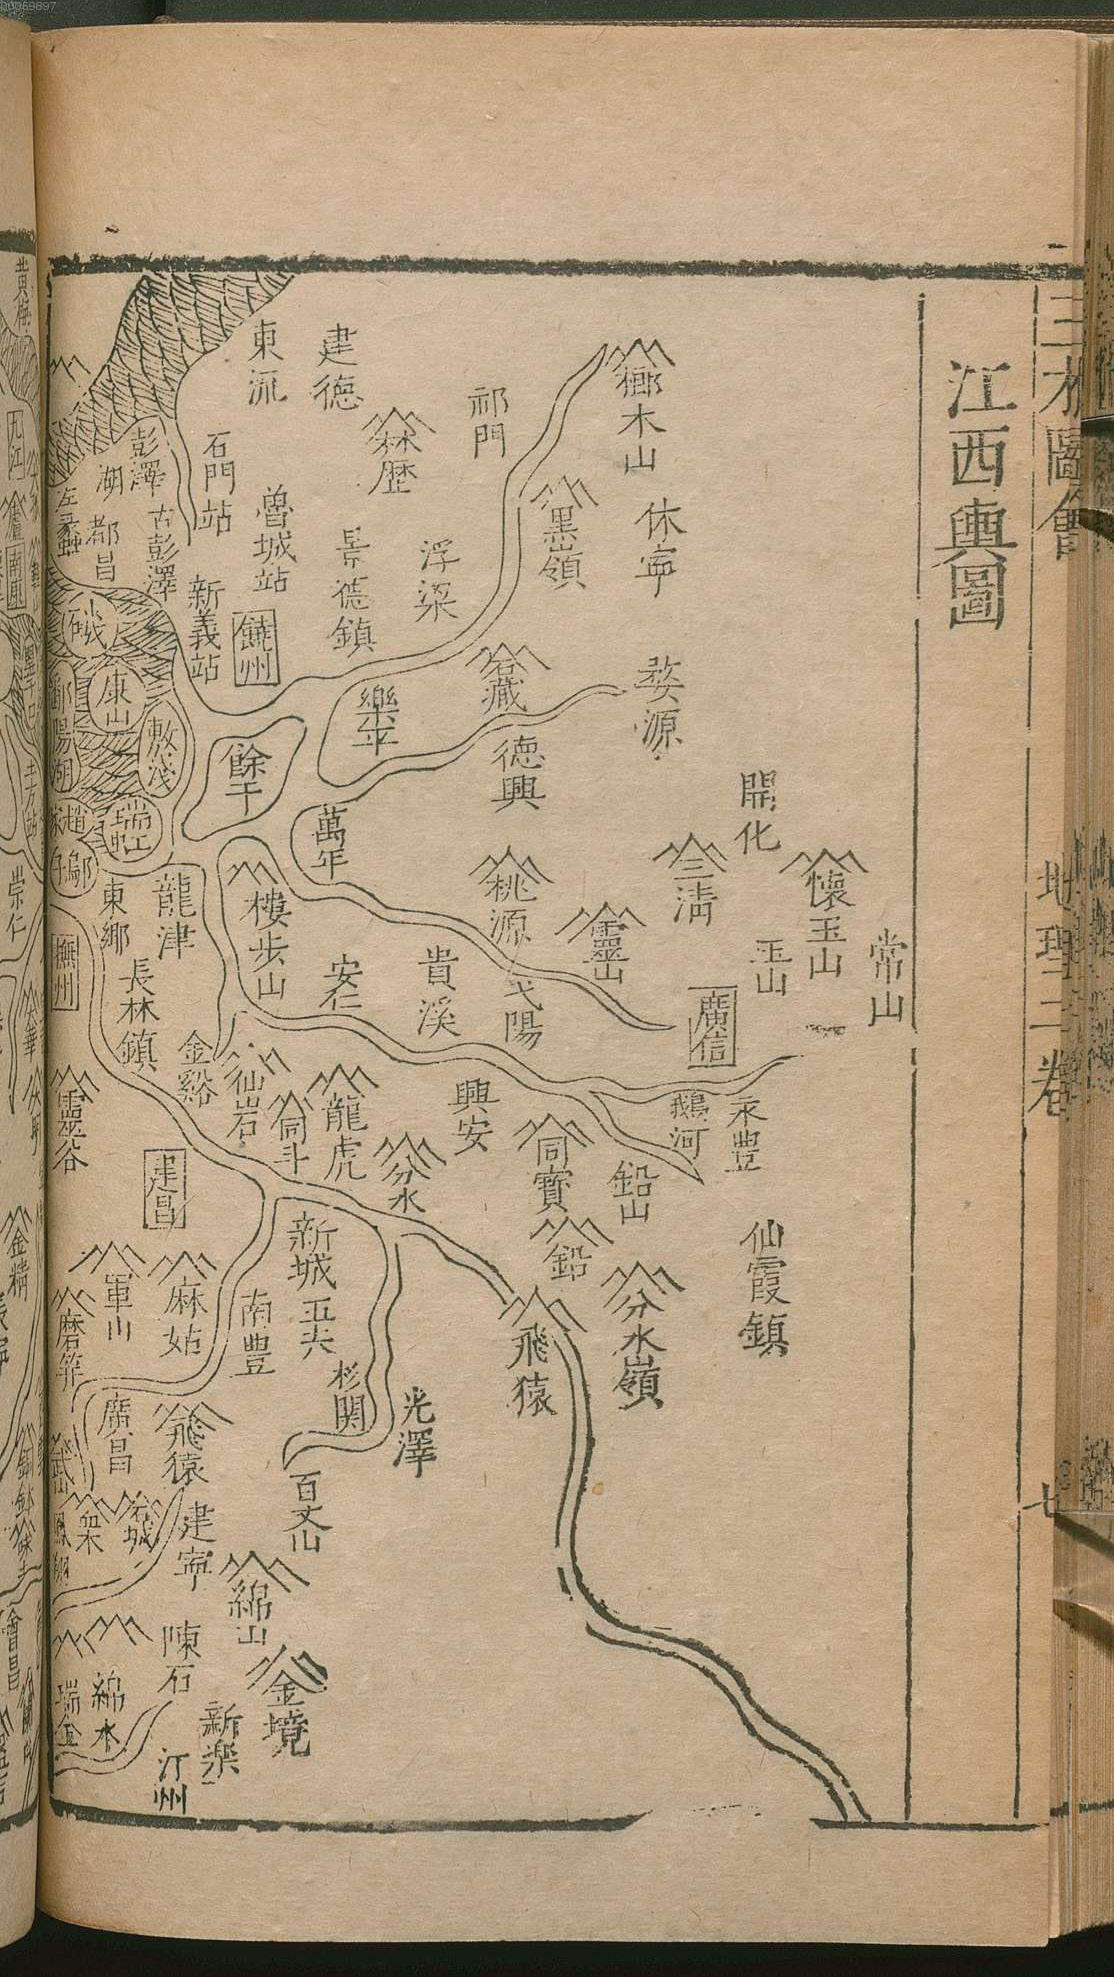 三才圖會
地理二卷
七
江西輿圖
常山
懷玉山
玉山
開化
三清
廣信
永豐
鵝河
仙霞鎮
榔木山
休寧
婺源
黑嶺
靈山
鉛山
分水嶺
祁門
浮梁
德興
桃源
弋陽
貴溪
興安
銅寶
鉛
飛猿
建德
林歷
景德鎮
樂平
萬年
安仁
龍虎
分水
新城
五夫
杉関
光澤
百丈山
東流
石門站
曾城站
饒州
新義站
餘干
樓步山
仙岩
南豊
彭澤
古彭澤
湖
都昌
左蠡
康山
鄱陽湖
瑞虹
龍津
東鄉
長林鎮
金谿
撫州
靈谷
建昌
軍山
麻姑
廣昌
飛猿
建寧
綿山
金境
陳石
新樂
綿水
瑞金
汀州
黃梅
九江
南康
崇仁
金精
會昌